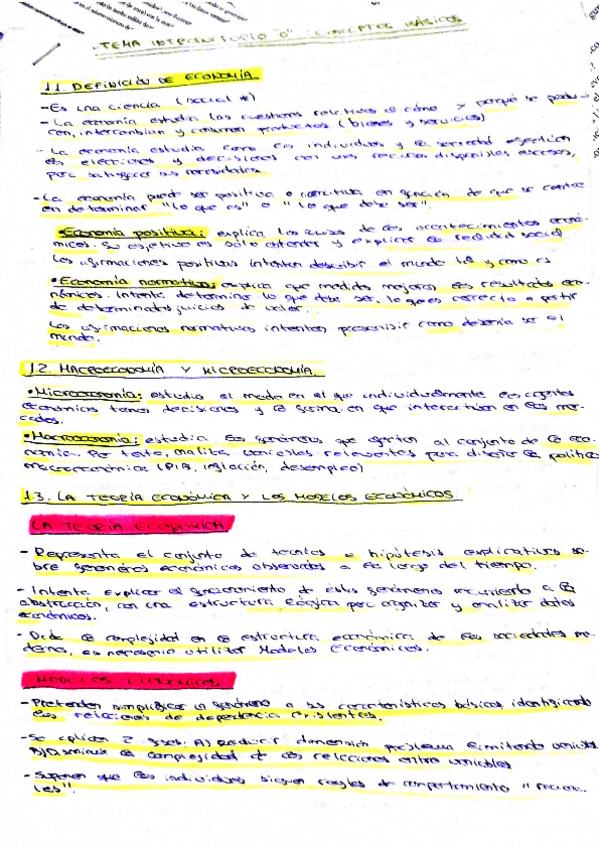 TEMA INTRODUCTORIO "0": CONCEPTOS BÁSICOS
1.1. DEFINICIÓN DE ECONOMÍA
- Es una ciencia (social *)
- La economía estudia las cuestiones relativas a cómo y porqué se produ-
cen, intercambian y consumen productos (bienes y servicios)
- La economía estudia como los individuos y la sociedad efectúan
las elecciones y decisiones con unos recursos disponibles escasos,
para satisfacer sus necesidades.
- La economía puede ser positiva o normativa en función de que se centre
en determinar "lo que es" o "lo que debe ser".
• Economía positiva: explica las causas de los acontecimientos econó-
micos. Su objetivo es sólo entender y explicar la realidad social.
Las afirmaciones positivas intentan describir el mundo tal y como es
• Economía normativa: explica que medidas mejoran los resultados eco-
nómicos. Intenta determinar lo que debe ser, lo que es correcto a partir
de determinados juicios de valor.
Las afirmaciones normativas intentan prescribir como debería ser el
mundo.
1.2. MACROECONOMÍA Y MICROECONOMÍA
• Microeconomía: estudia el modo en el que individualmente los agentes
económicos toman decisiones y la forma en que interactúan en los mer-
cados.
• Macroeconomía: estudia los fenómenos que afectan al conjunto de la eco-
nomía. Por tanto, analiza variables relevantes para diseñar la política
macroeconómica (PIB, inflación, desempleo)
1.3. LA TEORÍA ECONÓMICA Y LOS MODELOS ECONÓMICOS
LA TEORÍA ECONÓMICA
- Representa el conjunto de teorías e hipótesis explicativas so-
bre fenómenos económicos observados a lo largo del tiempo.
- Intenta explicar el funcionamiento de estos fenómenos recurriendo a la
abstracción, con una estructura lógica para organizar y analizar datos
económicos.
- Dada la complejidad en la estructura económica de las sociedades mo-
dernas, es necesario utilizar Modelos Económicos.
MODELOS ECONÓMICOS
- Pretenden simplificar un fenómeno a sus características básicas identificando
las relaciones de dependencia existentes.
- Se aplican 2 fases: A) Reducir dimensión problema limitando variables
B) Disminuir la complejidad de las relaciones entre variables
- Suponen que los individuos siguen reglas de comportamiento "raciona-
les".